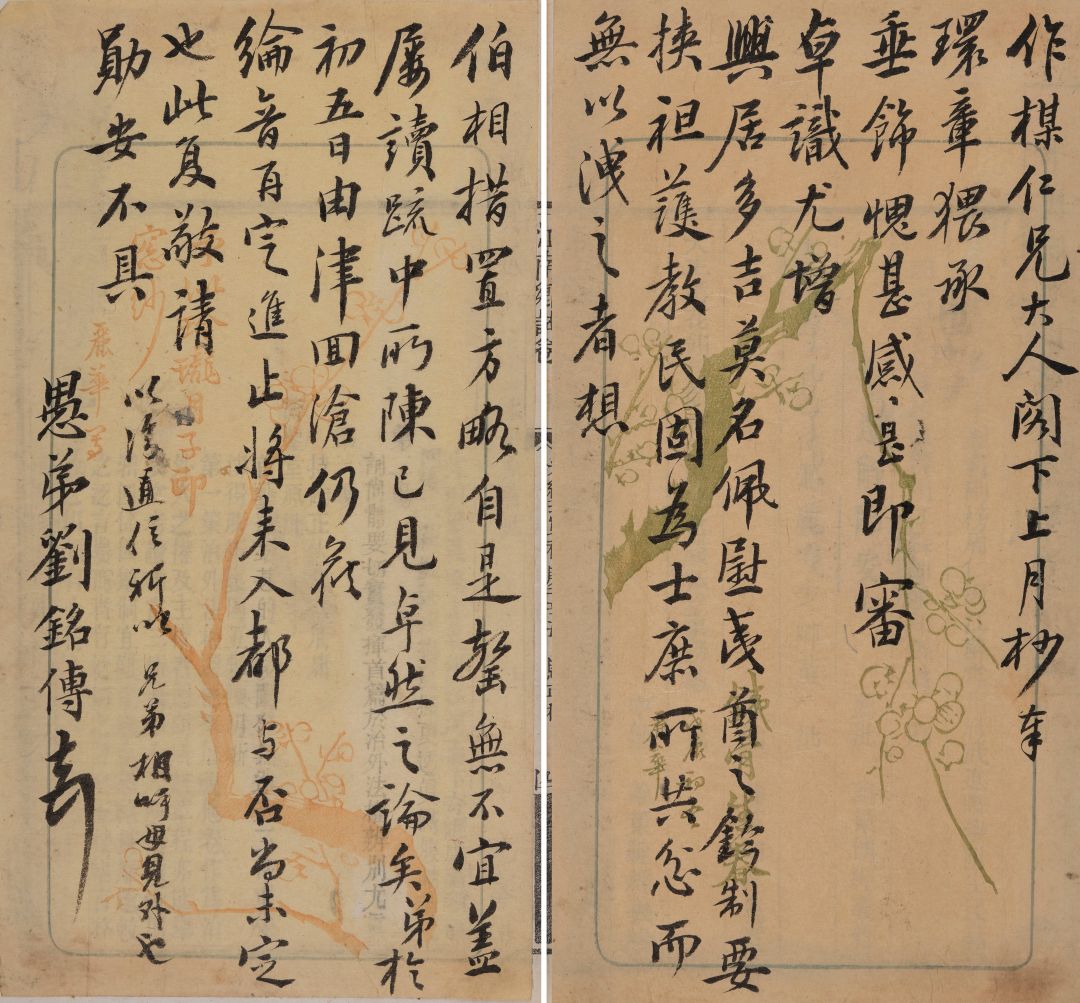 作楳仁兄大人閣下上月杪奉
環章猥承
垂飾愧甚感甚即審
卓識尤增
興居多吉莫名佩慰夷酋之鈐制要
挾袒護教民固為士庶所共忿而
無以洩之者想
伯相措置方略自是罄無不宜蓋
屢讀疏中所陳已見卓然之論矣弟於
初五日由津回滄仍候
綸音再定進止將來入都与否尚未定
也此复敬請
勛安不具
以後通信祈以兄弟相呼毋見外也
愚弟劉銘傳